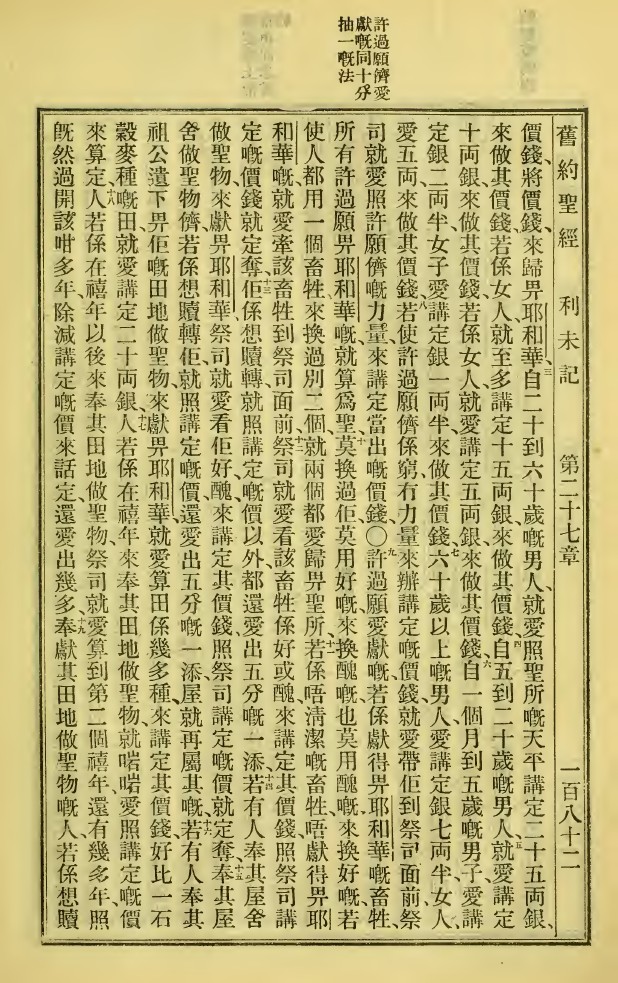 許過願儕愛
獻嘅同十分
抽一嘅法
舊約聖經 利未記 第二十七章 一百八十二
價錢、將價錢、來歸畀耶和華、三自二十到六十歲嘅男人、就愛照聖所嘅天平講定二十五両銀、
來做其價錢、四若係女人、就至多講定十五両銀、來做其價錢、五自五到二十歲嘅男人、就愛講定
十両銀、來做其價錢、若係女人、就愛講定五両銀、來做其價錢、六自一個月到五歲嘅男子、愛講
定銀二両半、女子愛講定銀一両半、來做其價錢、七六十歲以上嘅男人、愛講定銀七両半、女人、
愛五両、來做其價錢、八若使許過願儕係窮冇力量、來辦講定嘅價錢、就愛帶佢到祭司面前、祭
司就愛照許願儕嘅力量、來講定當出嘅價錢、〇九許過願愛獻嘅、若係獻得畀耶和華嘅畜牲、
所有許過願畀耶和華嘅、就算爲聖、十莫換過佢、莫用好嘅、來換醜嘅、也莫用醜嘅、來換好嘅、若
使人都用一個畜牲、來換過別二個、就兩個都愛歸畀聖所、十一若係唔淸潔嘅畜牲、唔獻得畀耶
和華嘅、就愛牽該畜牲到祭司面前、十二祭司就愛看該畜牲係好或醜、來講定其價錢、照祭司講
定嘅價錢、就定奪、十三佢係想贖轉、就照講定嘅價以外、都還愛出五分嘅一添、十四若有人奉其屋舍
做聖物、來獻畀耶和華、祭司就愛看佢好醜、來講定其價錢、照祭司講定嘅價、就定奪、十五奉其屋
舍做聖物儕、若係想贖轉佢、就照講定嘅價、還愛出五分嘅一添、屋就再屬其嘅、十六若有人奉其
祖公遺下畀佢嘅田地做聖物、來獻畀耶和華、就愛算田係幾多種、來講定其價錢、好比一石
穀麥種嘅田、就愛講定二十両銀、十七人若係在禧年、來奉其田地做聖物、就啱啱愛照講定嘅價
來算定、十八人若係在禧年以後、來奉其田地做聖物、祭司就愛算到第二個禧年、還有幾多年、照
旣然過開該咁多年、除減講定嘅價、來話定還愛出幾多、十九奉獻其田地做聖物嘅人、若係想贖